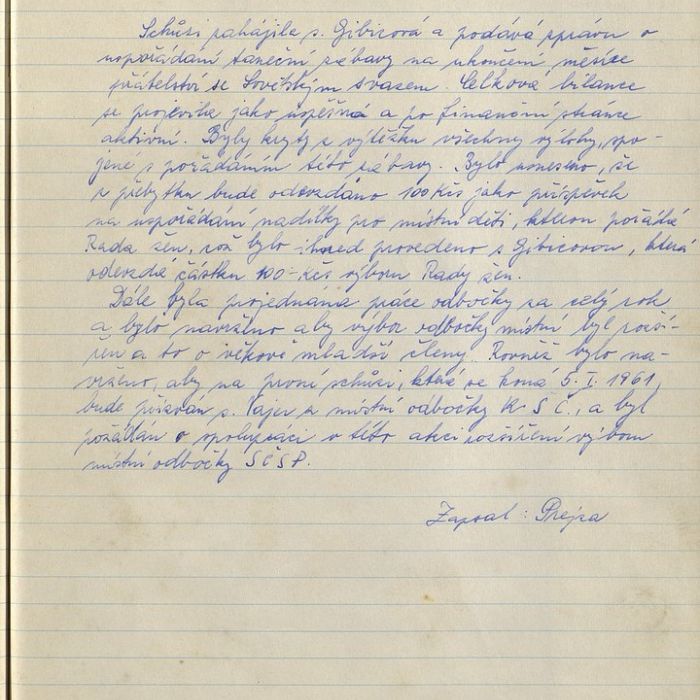 Schůzi zahájila s. Gibicová a podává zprávu o
uspořádání taneční zábavy na ukončení měsíce
přátelství se Sovětským svazem. Celková bilance
se projevila jako úspěšná a po finanční stránce
aktivní. Byly kryty z výtěžku všechny výlohy, spo-
jené s pořádáním této zábavy. Bylo usneseno, že
z přebytku bude odevzdáno 100 Kčs jako příspěvek
na uspořádání nadílky pro místní děti, kterou pořádá
Rada žen, což bylo ihned provedeno s. Gibicovou, která
odevzdá částku 100- Kčs výboru Rady žen.
Dále byla projednána práce odbočky za celý rok
a bylo navrženo aby výbor odbočky místní byl rozší-
řen a to o věkově mladší členy. Rovněž bylo na-
vrženo, aby na první schůzi, která se koná 5. I. 1961,
bude přizván s. Vajer z místní odbočky K S Č., a byl
požádán o spolupráci v této akci rozšíření výboru
místní odbočky SČSP.
Zapsal: Prejza